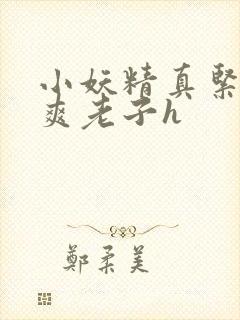 小妖精真緊
爽老子h
鄭柔美